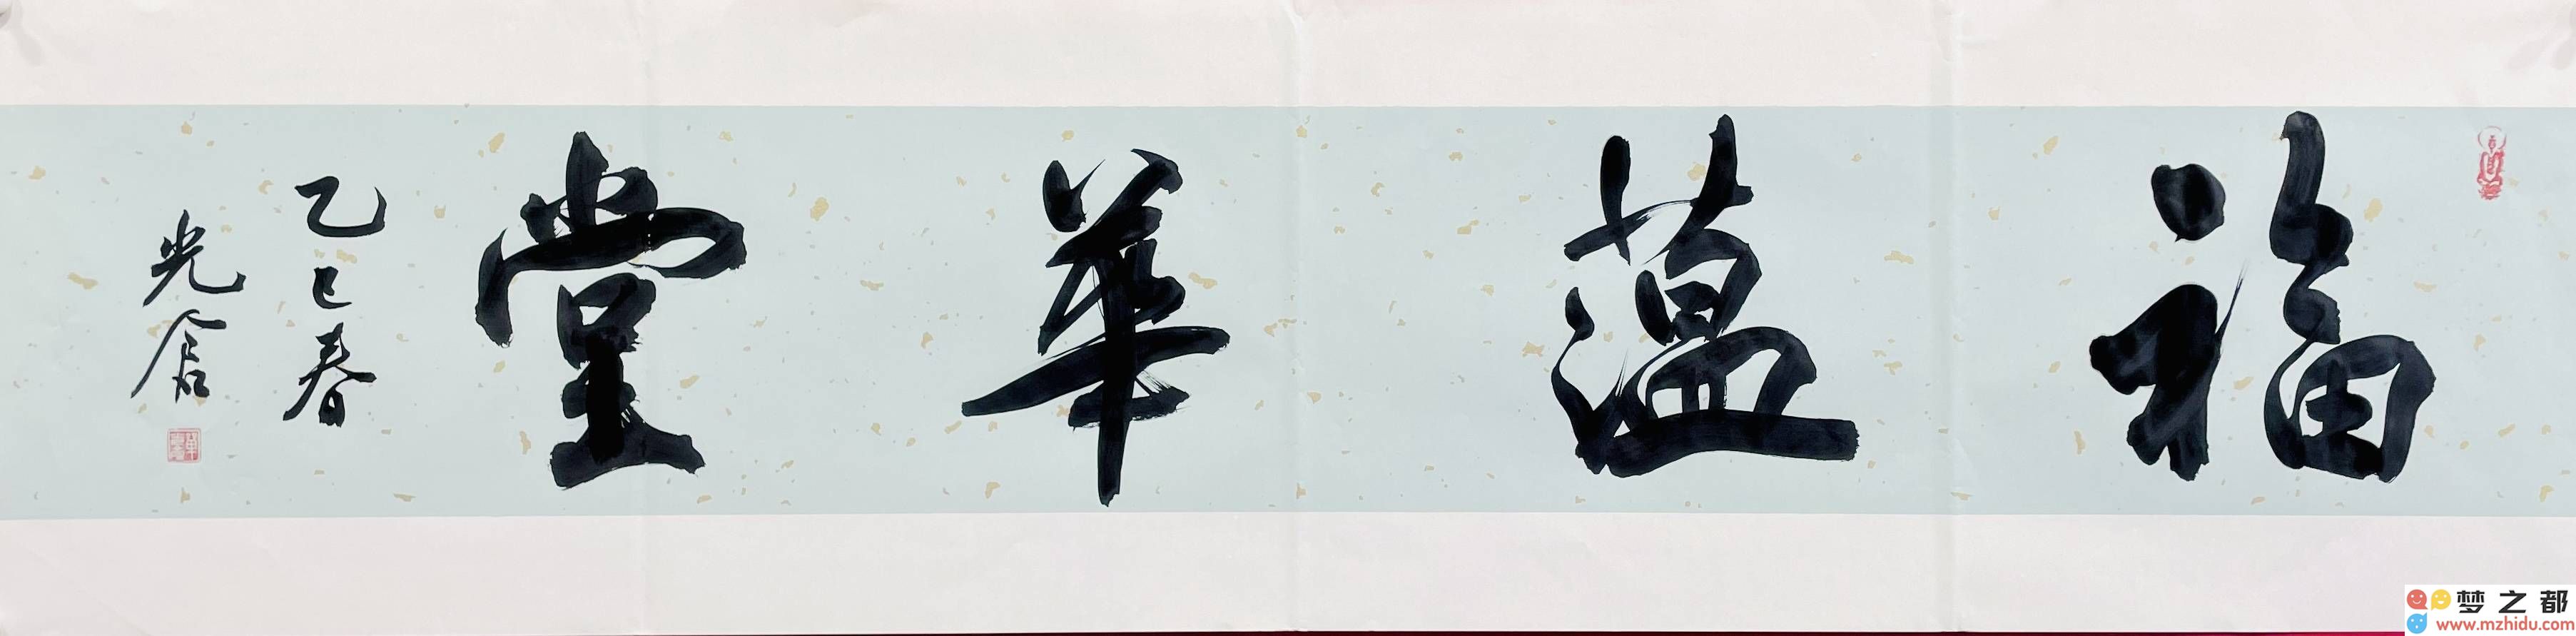 福蕴華堂
乙巳春
光倉
梦之都
www.mzhidu.com